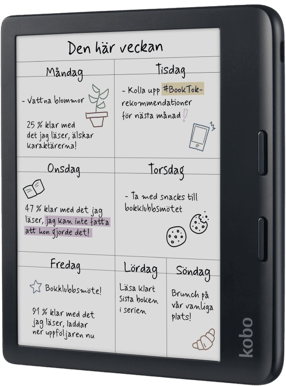 Den här veckan
Måndag
- Vattna blommor
25 % klar med
det jag läser, älskar
karaktärerna!
Tisdag
- Kolla upp #BookTok-
rekommendationer
för nästa månad!
Onsdag
47 % klar med det jag
läser, jag kan inte fatta
att hon gjorde det!
Torsdag
- Ta med snacks till
bokklubbsmötet
Fredag
Bokklubbsmöte!
91 % klar med det
jag läser, laddar
ner uppföljaren nu
Lördag
Läsa klart
sista boken
i serien
Söndag
Brunch på
vår vanliga
plats!
kobo